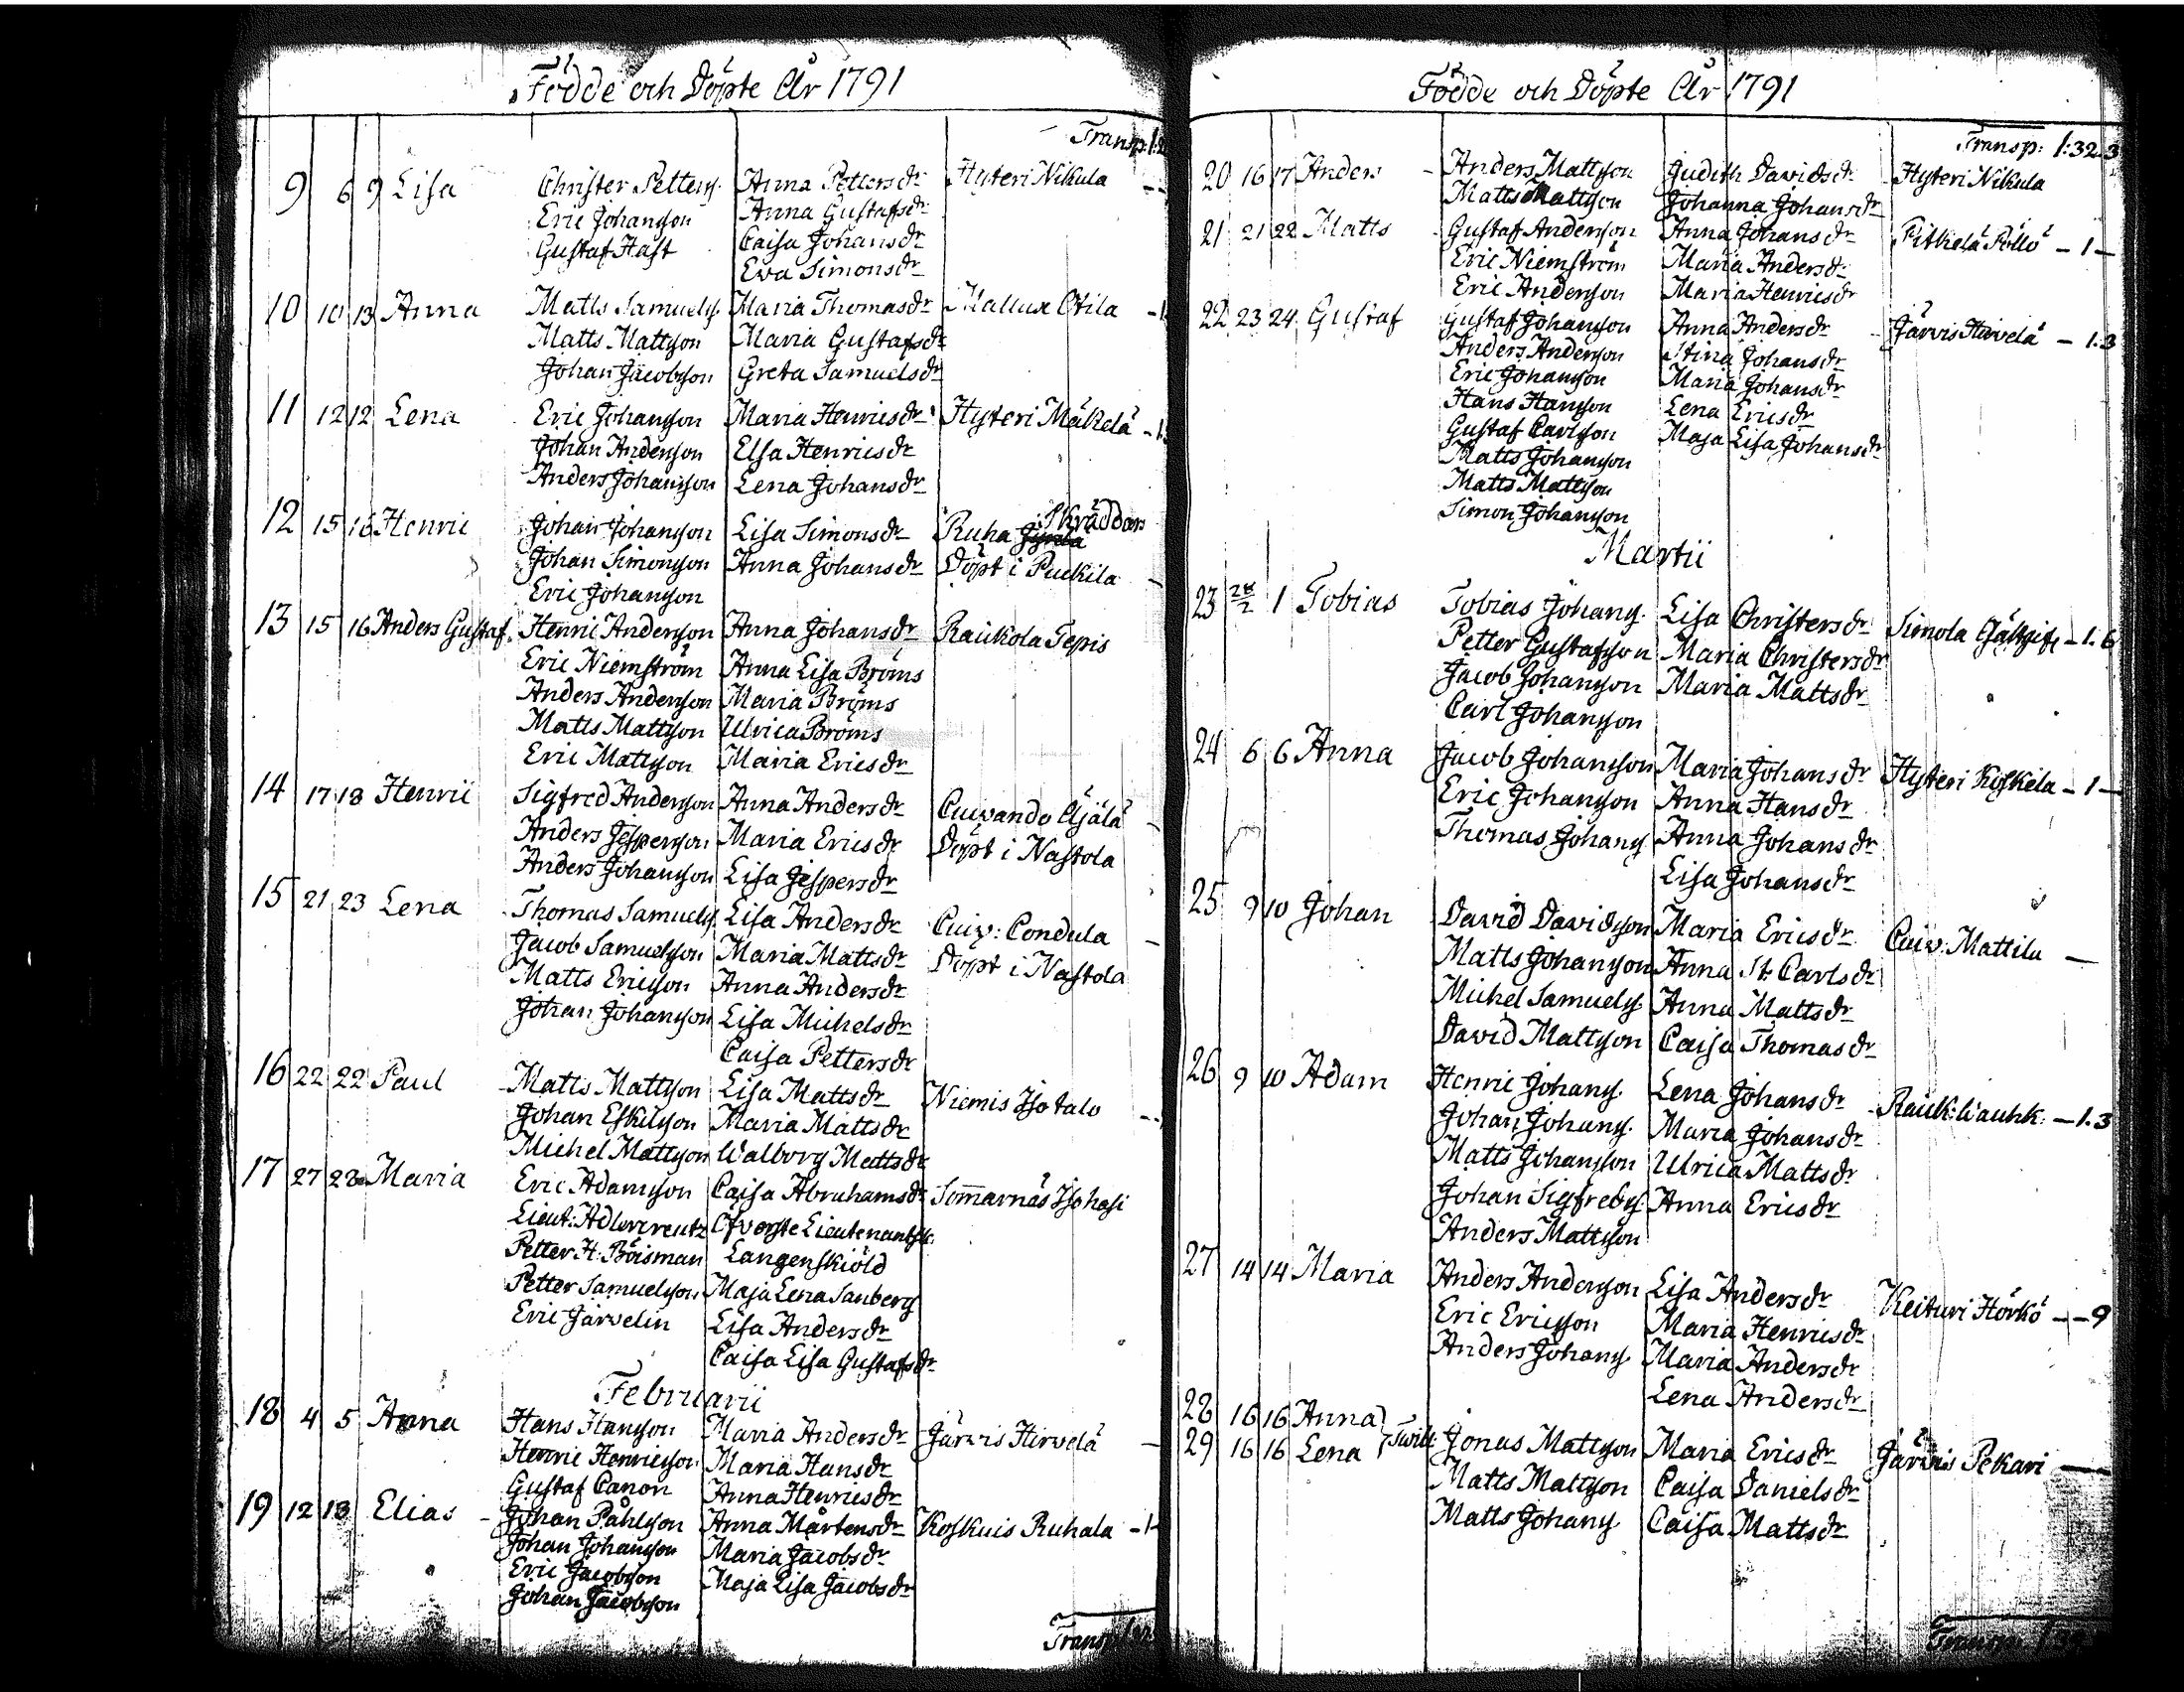 Födde och Döpte År 1791
Transp:
9 6 9 Lisa Christer Petters. Anna Pettersdr Hyteri Nikula
Eric Johansson Anna Gustafsdr
Gustaf Hast Caisa Johansdr
Ewa Simonsdr
10 10 13 Anna Matts Samuels. Maria Thomasdr
Matts Mattsson Maria Gustafsdr
Johan Jacobsson Greta Samuelsdr
11 12 12 Lena Eric Johansson Maria Henricsdr Hyteri Mäkelä
Johan Andersson Elsa Henricsdr
Anders Johansson Lena Johansdr
Skräddars
12 15 16 Henric Johan Johansson Lisa Simonsdr Ruha
Johan Simonsson Anna Johansdr Döpt i Puckila
Eric Johansson
13 15 16 Anders Gustaf. Henric Andersson Anna Johansdr Raukola Tepis
Eric Niemström Anna Lisa Broms
Anders Andersson Maria Broms
Matts Mattsson Ulrica Broms
Eric Mattsson Maria Ericsdr
14 17 18 Henric Sigfred Andersson Anna Andersdr Cuivando Äjälä
Anders Jespersson Maria Ericsdr Döpt i Nastola
Anders Johansson Lisa Jespersdr
15 21 23 Lena Thomas Samuels. Lisa Andersdr Cuiv: Condula
Jacob Samuelsson Maria Mattsdr Döpt i Nastola
Matts Ericsson Anna Andersdr
Johan Johansson Lisa Michelsdr
Caisa Pettersdr
16 22 22 Paul Matts Mattsson Lisa Mattsdr Niemis Isotalo
Johan Eskilsson Maria Mattsdr
Michel Mattsson Walborg Mattsdr
17 27 28 Maria Eric Adamsson Caisa Abrahamsdr Sommarnäs Isohesi
Lieut: Adlercreutz Öfverste Lieutenantsk.
Petter H. Böisman Langenskiöld
Petter Samuelsson Maja Lena Sanberg
Eric Järvelin Lisa Andersdr
Caisa Lisa Gustafsdr
Februarii
18 4 5 Anna Hans Hansson Maria Andersdr Järvis Hirvelä
Henric Henricsson Maria Hansdr
Gustaf Canon Anna Henricsdr
19 12 13 Elias Johan Påhlsson Anna Mårtensdr Koskuis Ruhala - 1 -
Johan Johansson Maria Jacobsdr
Eric Jacobsson Maja Lisa Jacobsdr
Johan Jacobsson
Transp:
Födde och Döpte År 1791
Transp: 1:32.3
20 16 17 Anders Anders Mattsson Judith Davidsdr Hyteri Nikula
Matts Mattsson Johanna Johansdr
21 21 22 Matts Gustaf Andersson Anna Johansdr Pitkelä Pöllö - 1 -
Eric Niemström Maria Andersdr
Eric Andersson Maria Henricsdr
22 23 24 Gustaf Gustaf Johansson Anna Andersdr Järvis Hirvelä - 1.3
Anders Andersson Stina Johansdr
Eric Johansson Maria Johansdr
Hans Hansson Lena Ericsdr
Gustaf Carlsson Maja Lisa Johansdr
Matts Johansson
Matts Mattsson
Simon Johansson
Martii
23 28/2 1 Tobias Tobias Johans. Lisa Christersdr Simola Gästgif: - 1.6
Petter Gustafsson Maria Christersdr
Jacob Johansson Maria Mattsdr
Carl Johansson
24 6 6 Anna Jacob Johansson Maria Johansdr Hyteri Koskela - 1 -
Eric Johansson Anna Hansdr
Thomas Johans. Anna Johansdr
Lisa Johansdr
25 9 10 Johan David Davidsson Maria Ericsdr Cuiv: Mattila -
Matts Johansson Anna St. Carlsdr
Michel Samuels. Anna Mattsdr
David Mattsson Caisa Thomasdr
26 9 10 Adam Henric Johans. Lena Johansdr Rauk: Wauhk: - 1.3
Johan Johans. Maria Johansdr
Matts Johansson Ulrica Mattsdr
Johan Sigfreds. Anna Ericsdr
Anders Mattsson
27 14 14 Maria Anders Andersson Lisa Andersdr Keituri Hörkö - - 9
Eric Ericsson Maria Henricsdr
Anders Johans. Maria Andersdr
Lena Andersdr
28 16 16 Anna
29 16 16 Lena Tvill: Jonas Mattsson Maria Ericsdr Järvis Pekari -
Matts Mattsson Caisa Danielsdr
Matts Johans. Caisa Mattsdr
Transp: